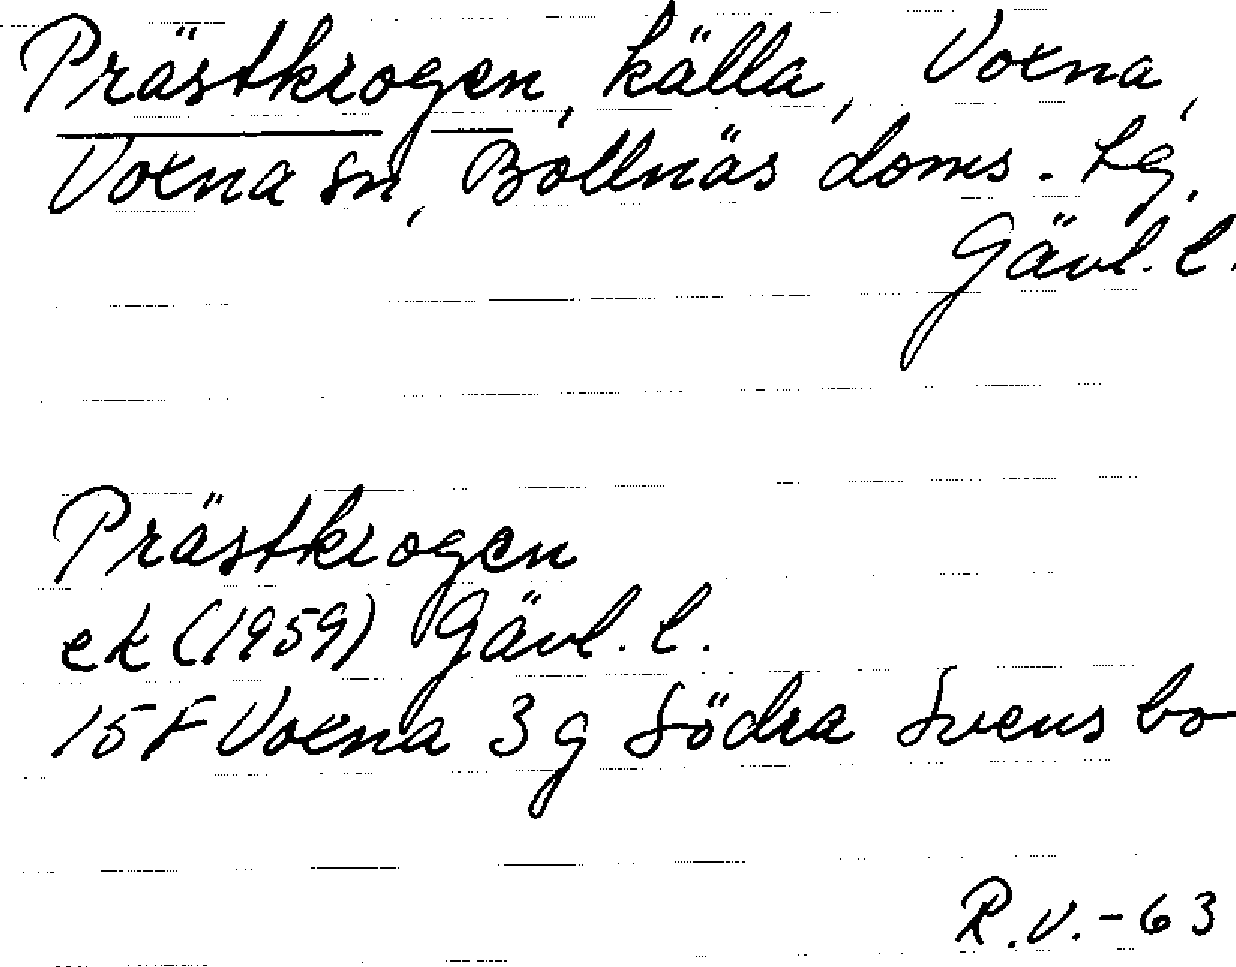 Prästkrogen, källa, Voxna,
Voxna sn, Bollnäs doms. tg.
Gävl. l.
Prästkrogen
ek (1959) Gävl. l.
15F Voxna 3 g Södra Svensbo
R.V.-63